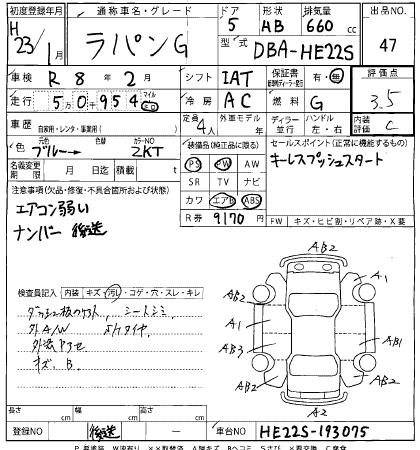 初度登録年月 通称車名・グレード ドア 形状 排気量 出品NO.
H 23 / 1 月 ラパンG 5 HB 660 cc
型式 DBA-HE22S 47
車検 R 8年 2月 シフト IAT 保証書 有・無 評価点
走行 5万0千954 マイル 冷房 AC 燃料 G 3.5
車歴 自家用・レンタ・事業用( ) 定員 4人 外車モデル 年 ディーラー 並行 ハンドル 左・右 内装評価 C
色 ブルー→ 色替 カラーNO ZKT 装備品(純正品に限る) セールスポイント(正常に機能するもの)
PS PW AW キーレスプッシュスタート
名義変更期限 月 日迄 積載 t SR TV ナビ
注意事項(欠品・修復・不具合箇所および状態) カワ エアB ABS
エアコン弱い R券 9170円 FW キズ・ヒビ割・リペア跡・X要
ナンバー 後送
AB2
A1
AB2
AB2
検査員記入 内装 キズ・汚レ・コゲ・穴・スレ・キレ
シートシミ
外A/W
キズ、B
A1
AB3
AB1
AB2
AB2
A2
長さ cm 幅 cm 高さ cm
登録NO 後送 — 車台NO HE22S-193075